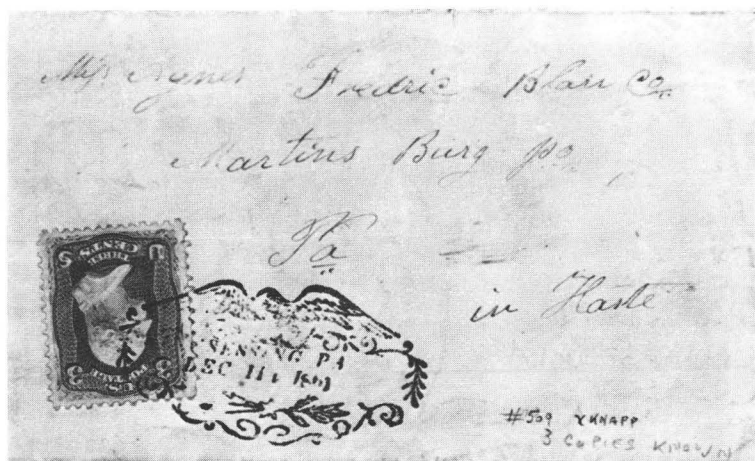 Miss Agnes Fredric Blair Co.
Martins Burg po
Pa
in Haste
SINSING PA
DEC 11
#509 KNAPP
3 COPIES KNOWN